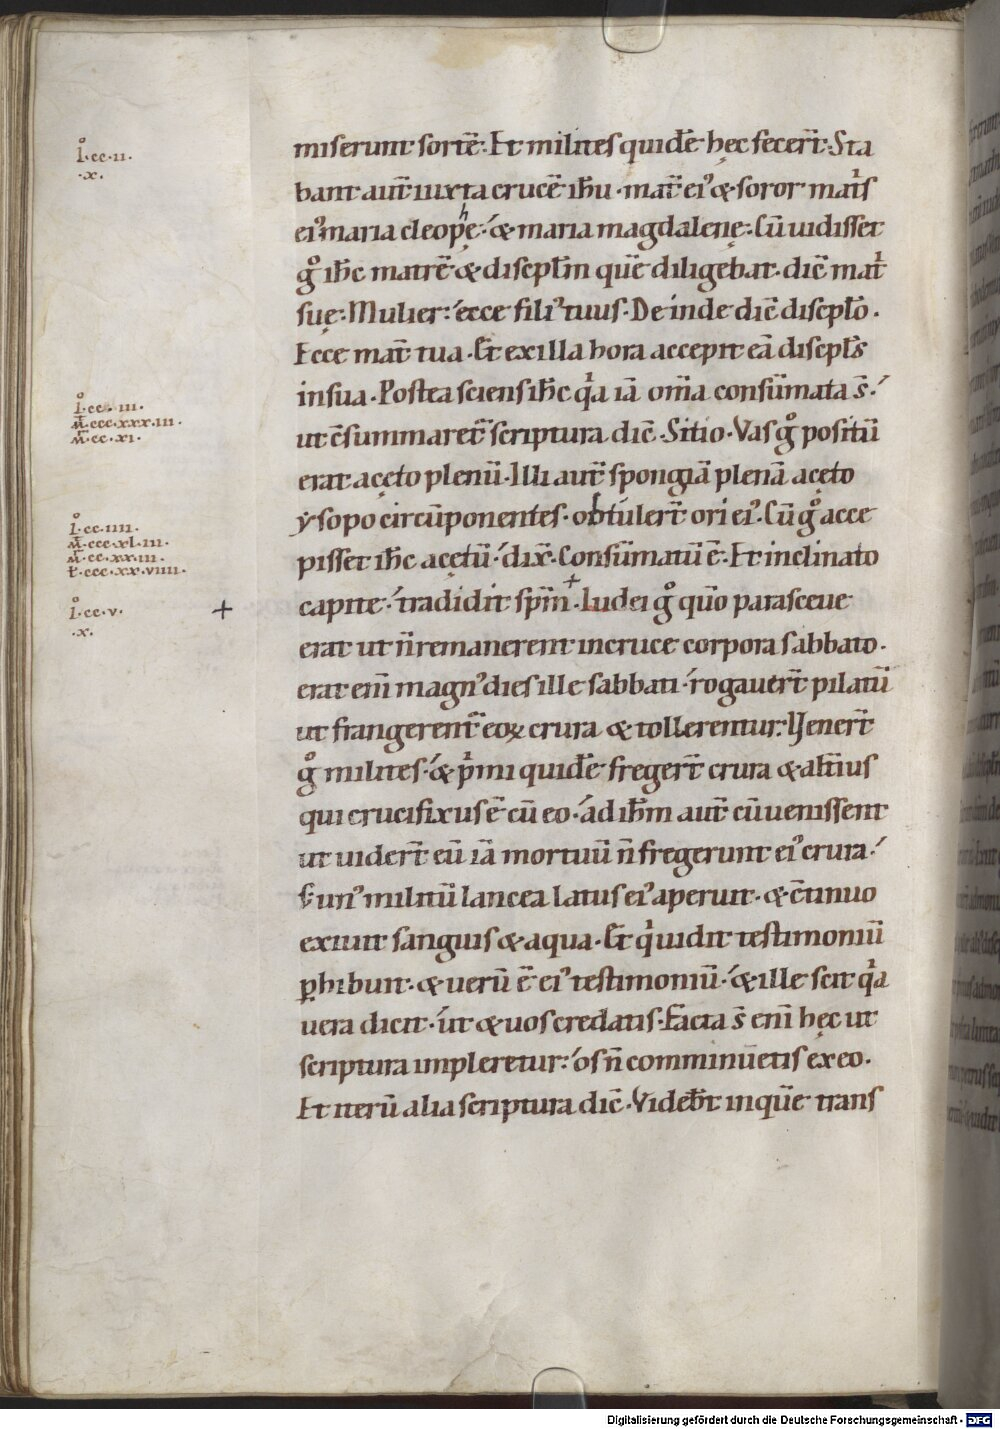 miserunt sortē. Et milites quidē hęc fecer̄t. Sta
bant aut̄ iuxta crucē ih̄u. mat̄ ei᾽ & soror mat̄s
ei᾽ maria cleophę. & maria magdalenę. Cū uidisset
gͦ ih̄c matrē & discipl̄m quē diligebat. dic̄ mat̄
suę. Mulier. ecce fili᾽ tuus. De inde dic̄ discpl̄o.
Ecce mat̄ tua. Et exilla hora accepit eā discpl̄s
insua. Postea sciens ih̄c qͥa iā om̄a consūmata s̄.
ut c̄summaret᷑ scriptura dic̄. Sitio. Vas gͦ positū
erat acęto plenū. Illi aut̄ spongiā plenā acęto
ysopo circūponentes. obtuler̄t ori ei᾽. Cū gͦ acce
pisset ih̄c acętū. dix̄. Consūmatū ē. Et inclinato
capite. tradidit sp̄m. Iudei gͦ qūo parasceue
erat ut n̄ remanerent incruce corpora sabbato.
erat eni᷑ magn᾽ dies ille sabbati. rogauer̄t pilatū
ut frangerent᷑ eoꝝ crura & tollerentur. Uener̄t
gͦ milites. & pͥmi quidē freger̄t crura & alt̄ius
qui crucifixus ē cū eo. ad ih̄m aut̄ cū uenissent
ut uider̄t eū iā mortuū n̄ fregerunt ei᾽ crura.
s; un᾽ militū lancea latus ei᾽ aperuit. & c̄tinuo
exiuit sanguis & aqua. Et qͥ uidit testimoniū
ꝑhibuit. & uerū ē ei᾽ testimoniū. & ille scit qͥa
uera dicit. ut & uos credatis. Facta s̄ eni᷑ hęc ut
scriptura impleretur. os n̄ comminūetis ex eo.
Et iterū alia scriptura dic̄. Videb̄t inquē trans
Iͦ.cc.II.
.x.
Iͦ.cc.III.
M̄.ccc.xxx.III.
M̄.cc.xI.
Iͦ.cc.IIII.
M̄.ccc.xl.III.
M̄.cc.xx.III.
L̄.ccc.xx.VIIII.
Iͦ.cc.v.
.x.
+
Digitalisierung gefördert durch die Deutsche Forschungsgemeinschaft - DFG